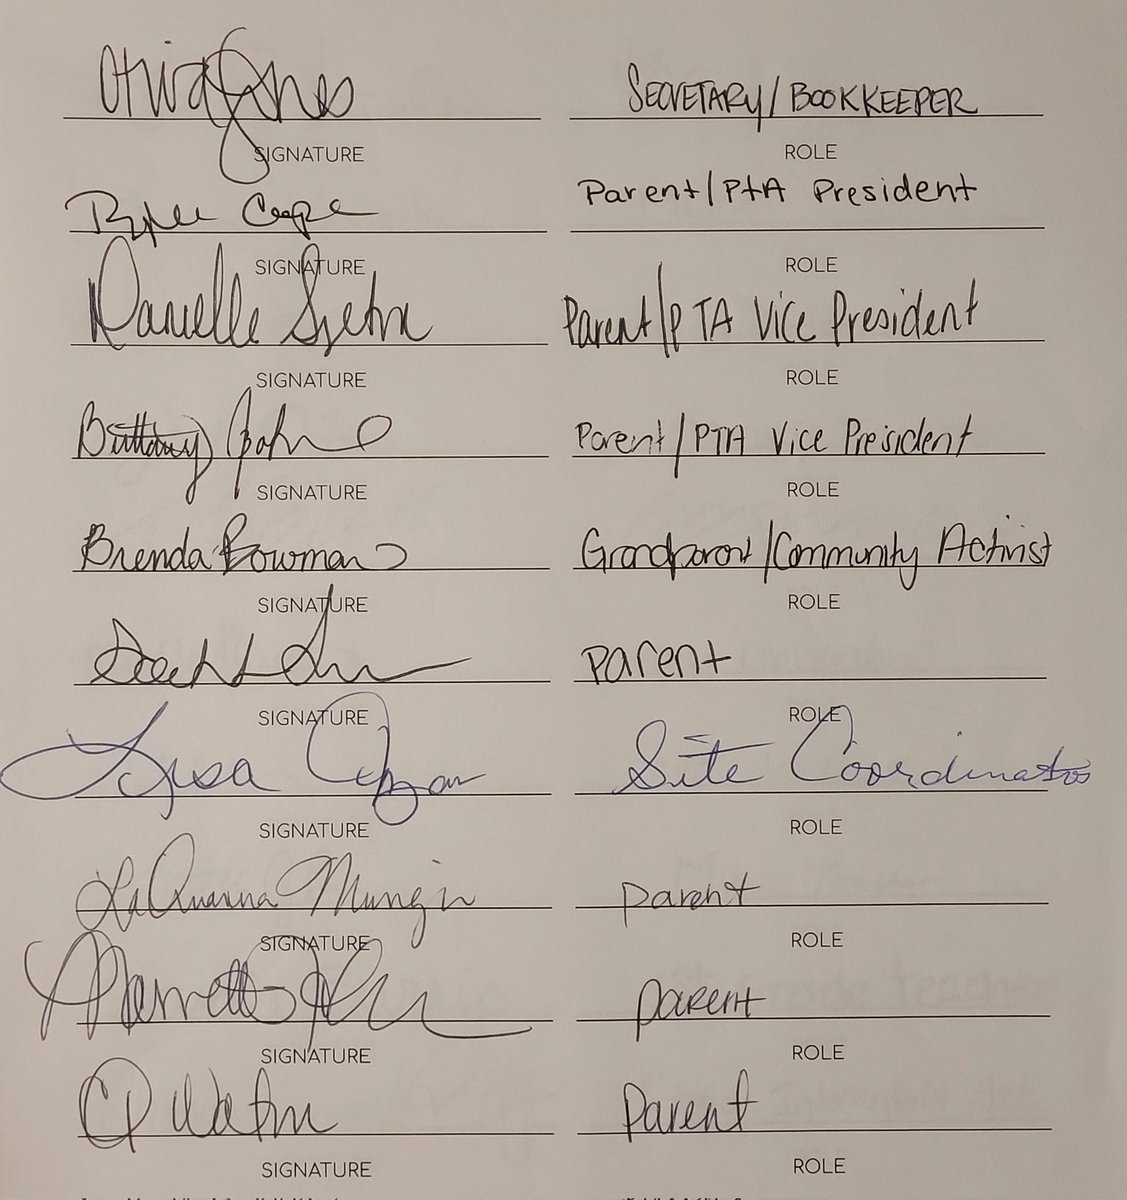 SECRETARY/BOOKKEEPER
SIGNATURE ROLE
Parent/PtA President
SIGNATURE ROLE
Danielle Parent/PTA Vice President
SIGNATURE ROLE
Brittany Parent/PTA Vice President
SIGNATURE ROLE
Brenda Bowman Grandparent/Community Activist
SIGNATURE ROLE
Parent
SIGNATURE ROLE
Lisa Site Coordinator
SIGNATURE ROLE
LaQuanna Mungin parent
SIGNATURE ROLE
parent
SIGNATURE ROLE
Parent
SIGNATURE ROLE